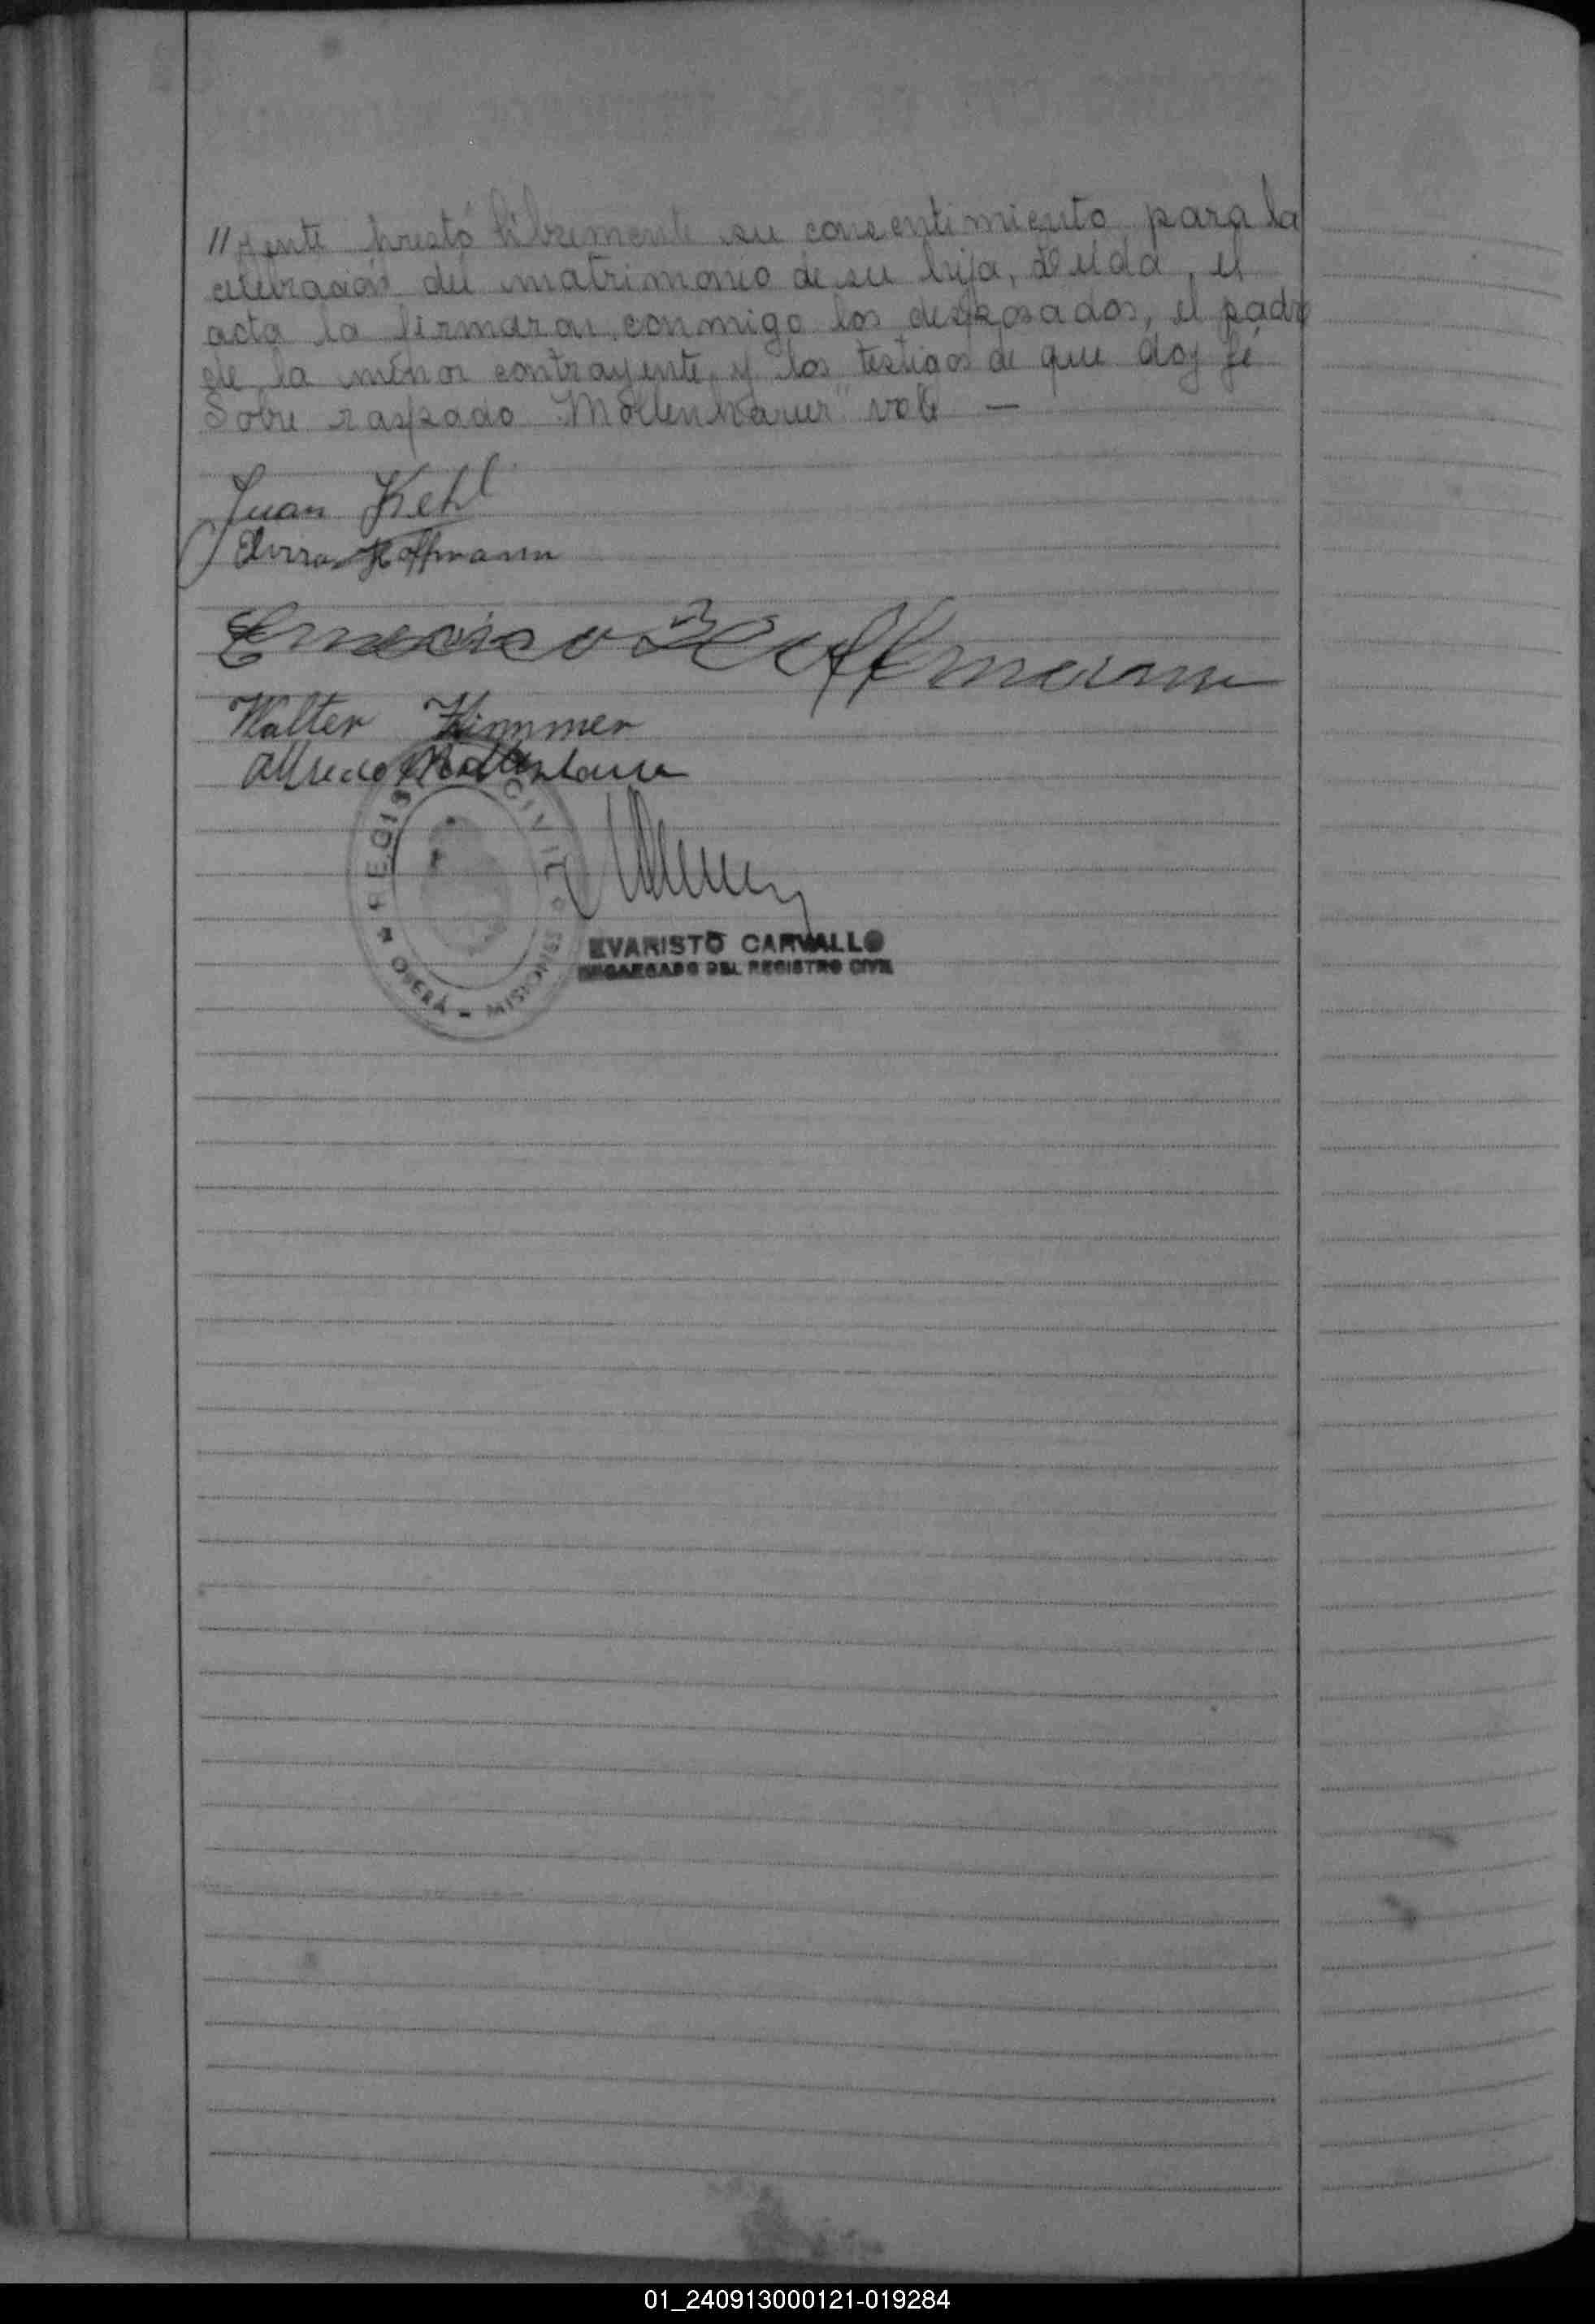 //yente prestó libremente su consentimiento para la
celebración del matrimonio de su hija, Leída, el
acta la firmaron conmigo los desposados, el padre
de la menor contrayente, y los testigos de que doy fé
Sobre raspado "Mollenhauer" vale —
Juan Kehl
Elvira Hoffmann
Hoffmann
Walter Kimmer
Alfredo Mollenhauer
REGISTRO CIVIL
OBERÁ - MISIONES
EVARISTO CARVALLO
ENCARGADO DEL REGISTRO CIVIL
01_240913000121-019284